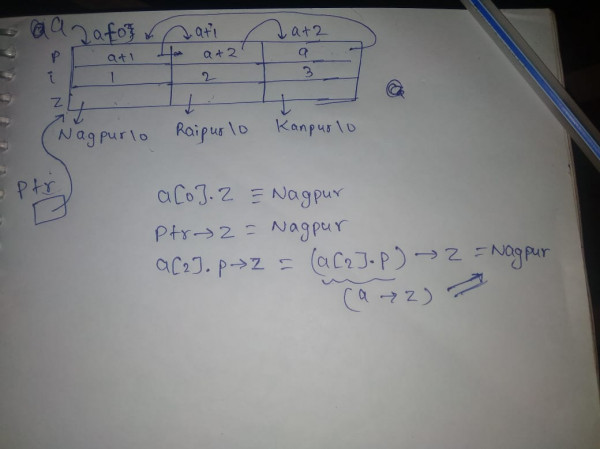 a a[0] a+1 a+2
P a+1 a+2 a
i 1 2 3
Z
Nagpur\0 Raipur\0 Kanpur\0
Ptr
a[0].Z ≡ Nagpur
Ptr→Z = Nagpur
a[2].p→Z = (a[2].p)→Z = Nagpur
(a→Z)